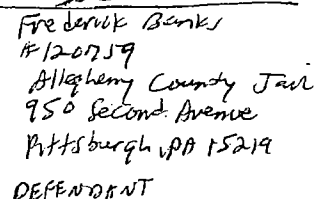 Frederick Banks
#120759
Allegheny County Jail
950 Second Avenue
Pittsburgh, PA 15219
DEFENDANT